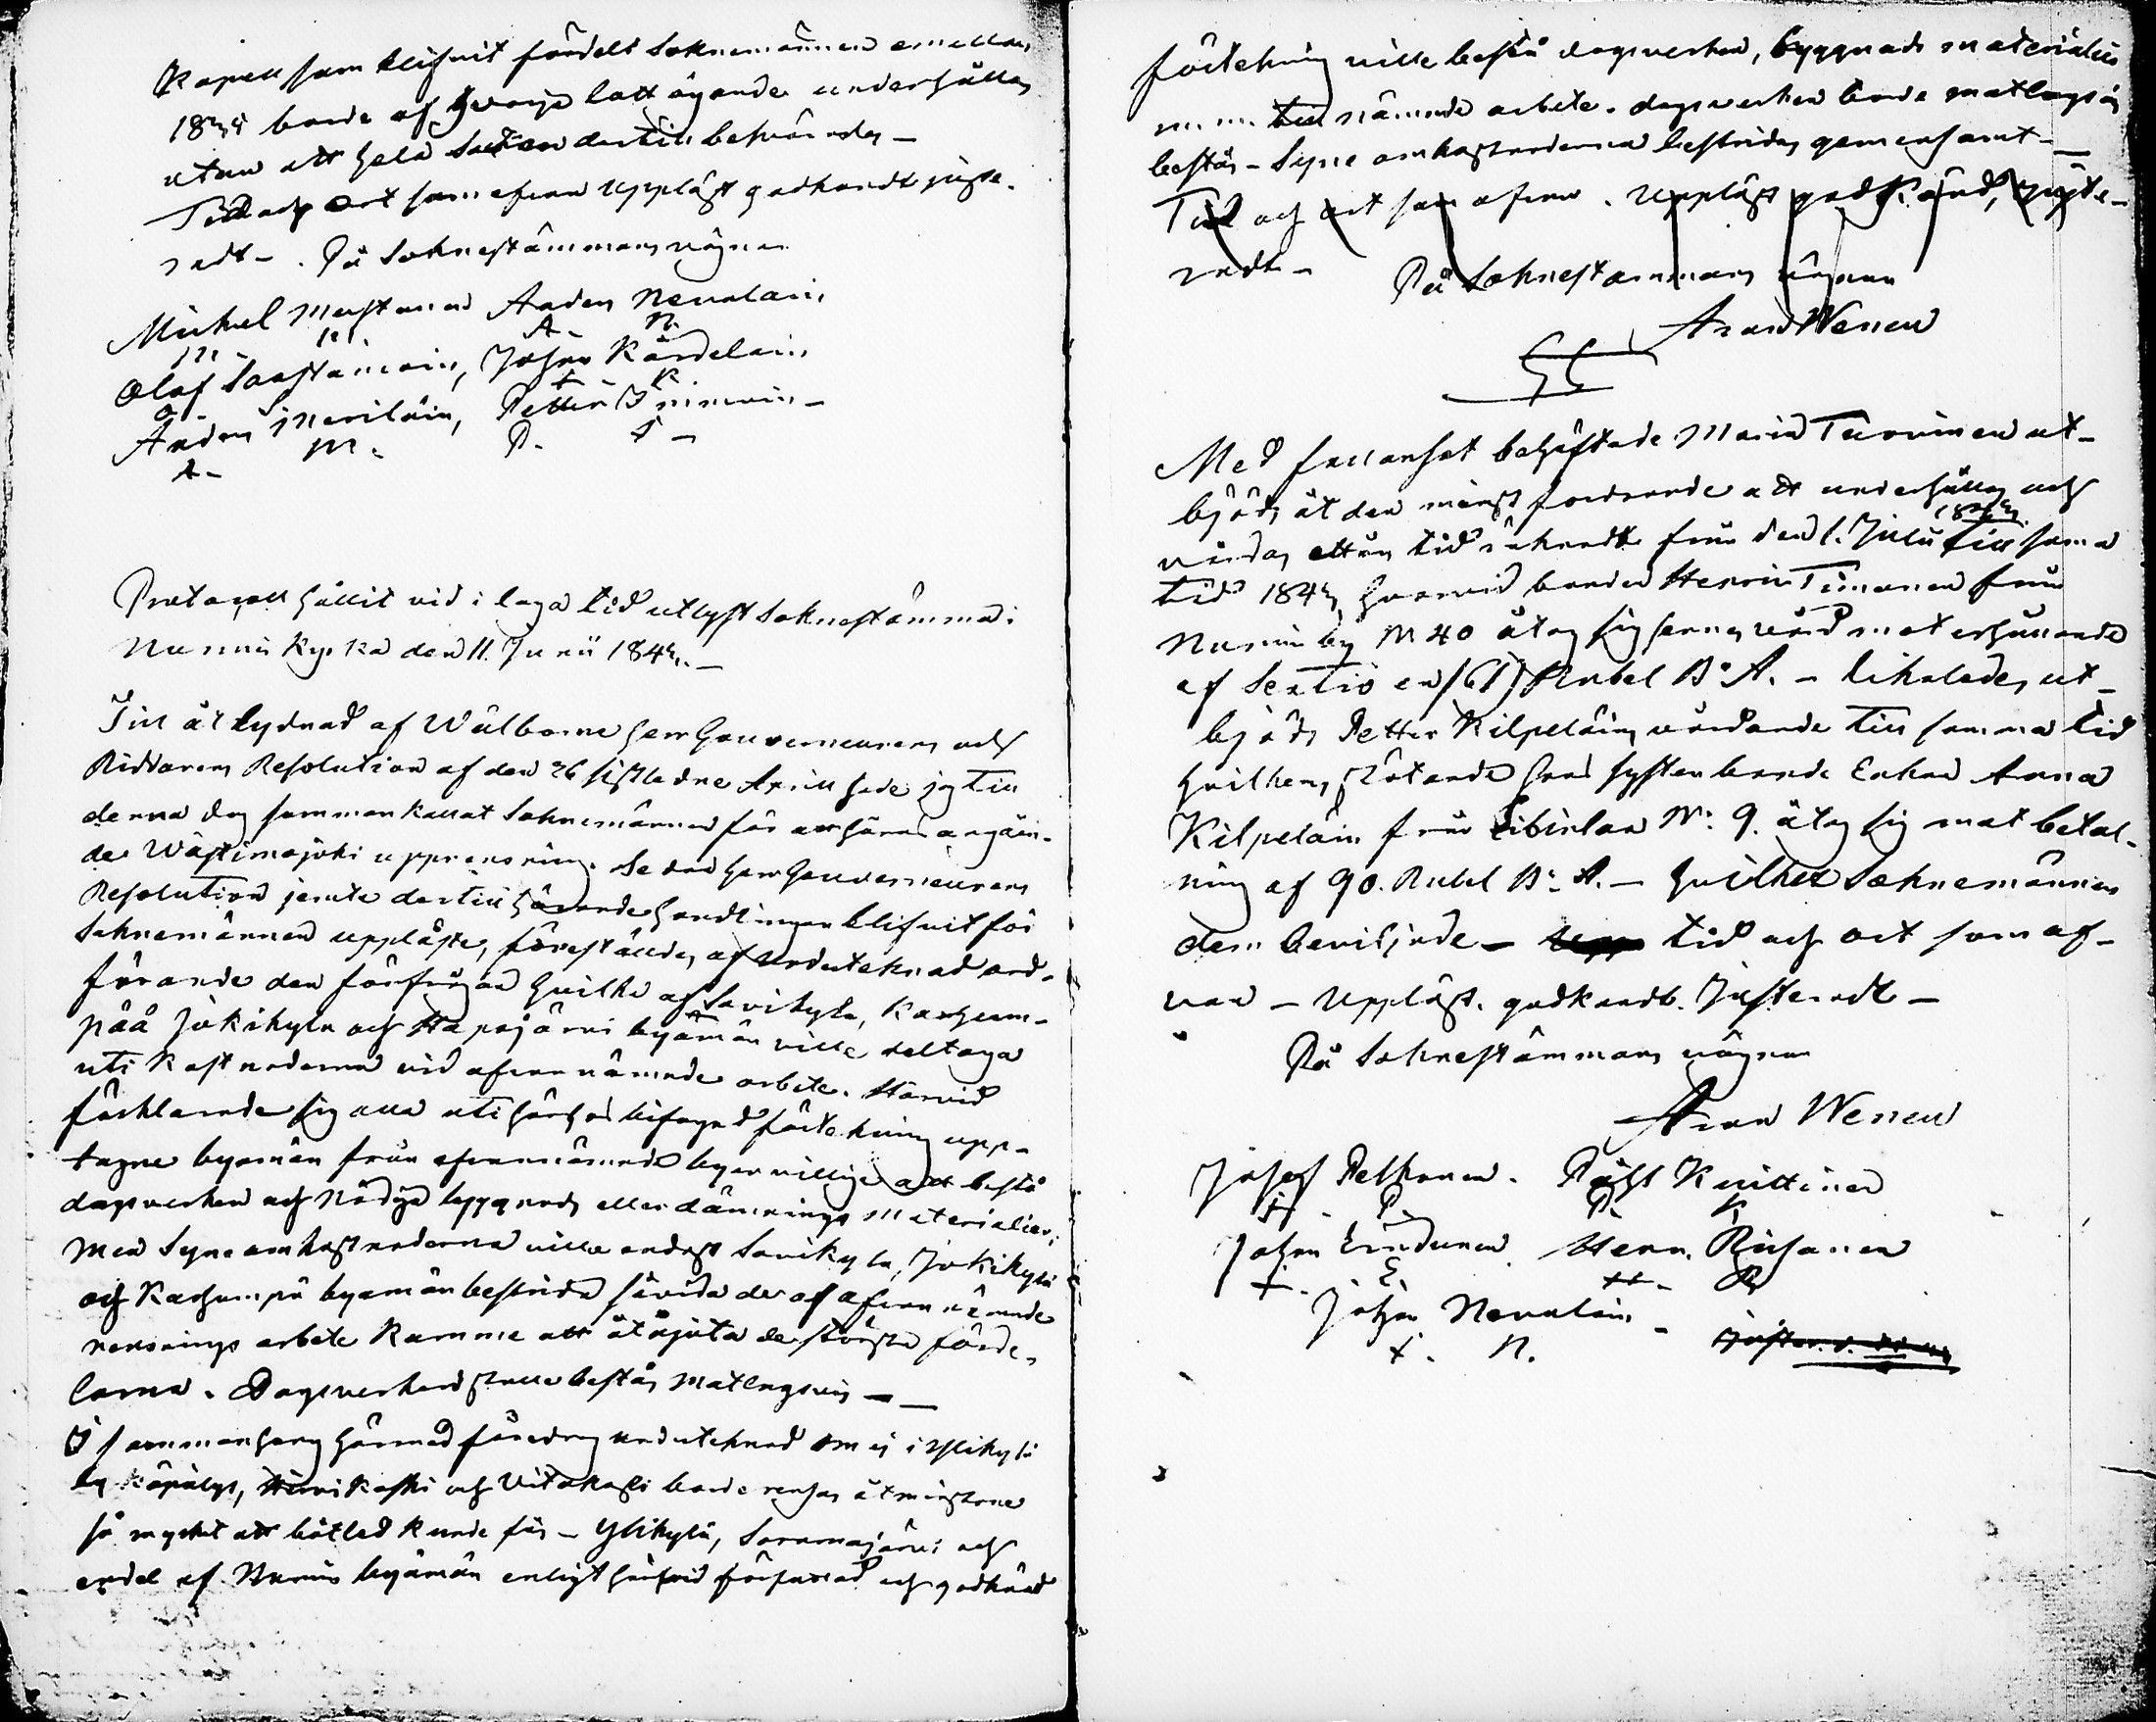 Kapell som blifvit fördelt Soknemännen emellan
borde af hvarje lott ägande underhållas
utan att hela Socken dertill besväras –
Tid och ort som ofvan uppläst godkändt juste-
radt – . På Soknestämmans vägnar
Mickel Anders Nevalain,
A – N.
Olof Johan Kärdelain,
O – + K
Anders Meriläin, Petter
A – M. P.
Protocoll hållit vid i laga tid utlyst Soknestämma i
Nurmis Kyrka den 11. Junii 184 –
Till åtlydnad af Wälborne herr Gouverneurens och
Riddarens Resolution af den 26 sistledne April hade jag till
denna dag sammankallat Soknemännen för att höras angåen-
de Wastimojoki upprensning. Sedan herr Gouverneurens
Resolution jemte dertill hörande handlingar blifvit för
Soknemännen uppläste, föreställdes af undertecknad ord-
förande den förfrågan hvilka af Savikylä, Karhun-
pää Jokikylä och Haapajärvi byamän ville deltaga
uti kostnaderna vid ofvannämnde arbete. Härvid
förklarade sig alla uti härhos bifogad förtekning upp-
tagne byamän från ofvannämnde byar villige att bestå
dagsverken och nödiga byggnads eller dämnings materialier,
men Syne omkostnaderna ville endast Savikylä, Jokikylä
och Karhunpä byamän bestrida såvida de af ofvan nämnde
rensnings arbete komme att åtnjuta de största förde-
larna. Dagsverken skulle bestås matlagsvis –
I sammanhang härmed föredrog undertecknad om ej i Ylikylä
by och Vitakoski borde rensas åtminstone
så mycket att båtled kunde fås – Ylikylä, Saramojärvi och
endel af Nurmis byamän enligt härhos och godkänd
förtekning ville bestå dagsverken, byggnads materialier
m. m. till nämnde arbete. dagsverken borde matlagsvis
bestås – Syne omkostnaderna bestridas gemensamt –
Tid och ort som ofvan . Uppläst godkänd, juste-
radt – På Soknestämmans vägnar
Aron Wenell
Med fallandsot behäftade Maria Turuinen ut-
bjöds åt den minst fordrande att underhållas och
vårdas ettårs tid räknadt från den 1. Julii till sama
tid 184 hvarvid bonden Henric Timonen från
Nurmis by N 40 åtog sig hennes vård mot erhållande
af Sextio en (61) Rubel B: A. – likaledes ut-
bjöds Petter Kilpeläins vårdande till samma tid
hvilkens skötande hans syster bonde Enkan Anna
Kilpeläin från N: 9. åtog sig mot betal-
ning af 90. Rubel B: A. – hvilket Soknemännen
dem beviljade – tid och ort som of-
van – Uppläst. godkändt. Justeradt –
På Soknestämmans vägnar
Aron Wenell
Josef Pelkonen. Påhl Kuittinen
+ . P. P. K
Johan Henr. Piihonen
+ . E H – P
Johan Nevalain –
+ . N.